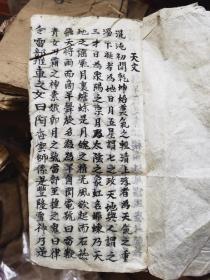 天文
混沌初開乾坤始奠氣之輕清上浮者為天氣之重
濁下凝者為地日月五星謂之七政天地與人謂之
三才日為衆陽之宗月乃太陰之象虹名螮蝀乃天
地之淫氣月裏蟾蜍是月魄之精光風欲起而石燕
飛天將雨而商羊舞旋風名為羊角閃電號曰雷鞭
青女乃霜之神素娥即月之號雷部至捷之鬼曰律
令雷部推車之女曰阿香雲師係是豐隆雪神乃是